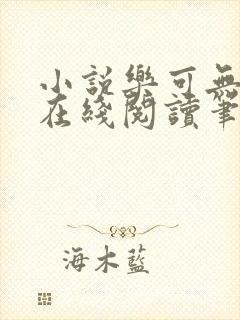 小説樂可無
在綫閱讀筆
海木藍